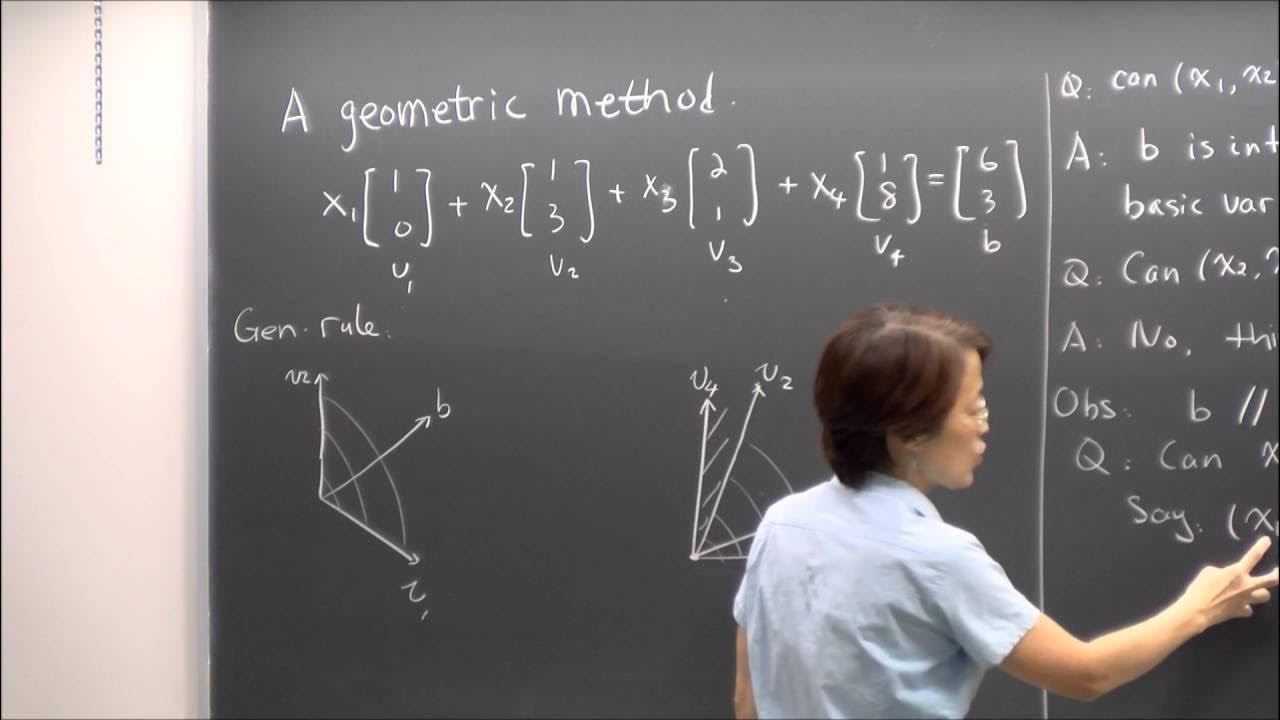 A geometric method.
x₁ [1 0] + x₂ [1 3] + x₃ [2 1] + x₄ [1 8] = [6 3]
v₁ v₂ v₃ v₄ b
Gen. rule:
v₂
b
v₁
v₄ v₂
Q: can (x₁, x₂
A: b is int
basic var
Q: Can (x₂,
A: No, thi
Obs: b //
Q: Can x
Say: (x₁